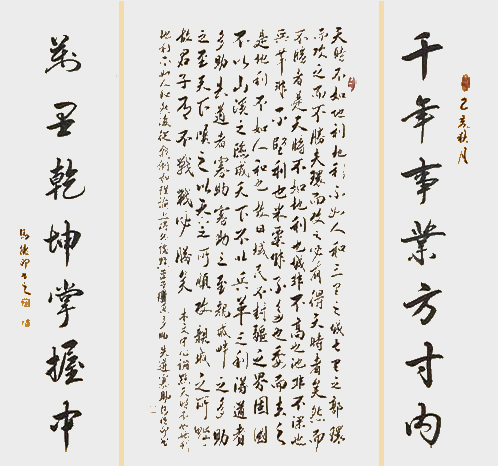 千年事業方寸內
己亥秋月
天時不如地利地利不如人和三里之城七里之郭環
而攻之而不勝夫環而攻之必有得天時者矣然而
不勝者是天時不如地利也城非不高也池非不深也
兵革非不堅利也米粟非不多也委而去之
是地利不如人和也故曰域民不封疆之界固國
不以山溪之險威天下不以兵革之利得道者
多助失道者寡助寡助之至親戚畔之多助
之至天下順之以天下之所順攻親戚之所畔
故君子有不戰戰必勝矣 本文中心論點天時不如地利
地利不如人和
萬里乾坤掌握中